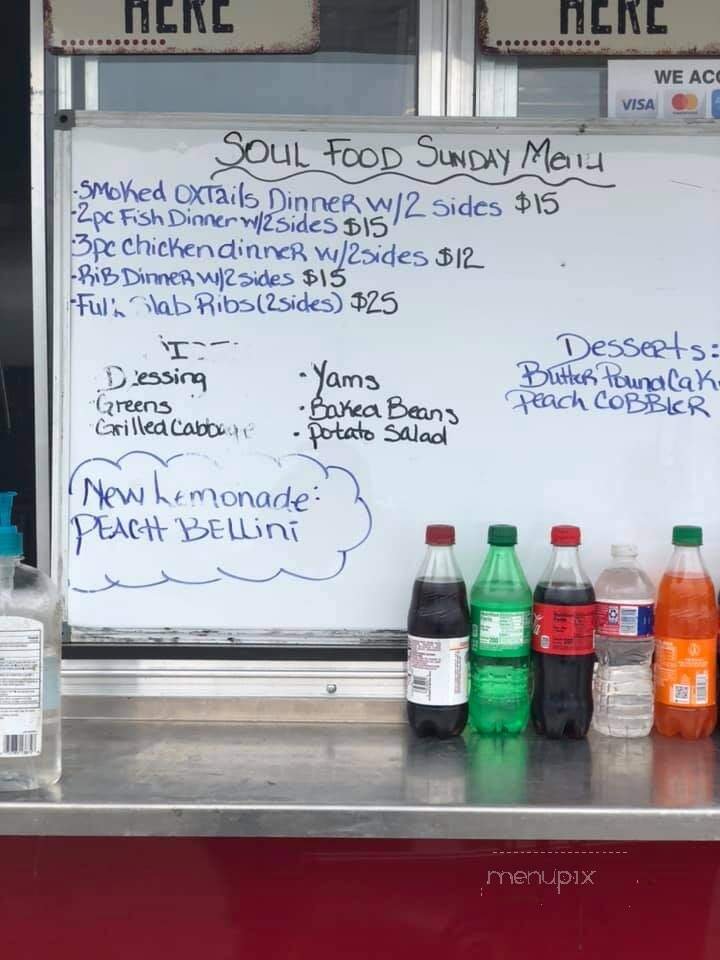 HERE
HERE
WE ACC
VISA
SOUL FOOD SUNDAY Menu
-SMoKed OXTails Dinner w/2 sides $15
-2pc Fish Dinner w/2sides $15
-3pc chicken dinner w/2sides $12
-RiB Dinner w/2sides $15
-Full Slab Ribs (2sides) $25
Dressing
Greens
Grilled Cabbage
•Yams
•Baked Beans
•Potato Salad
Desserts:
Butter Pound Cak
Peach COBBLER
New Lemonade:
PEACH BELLini
menupix